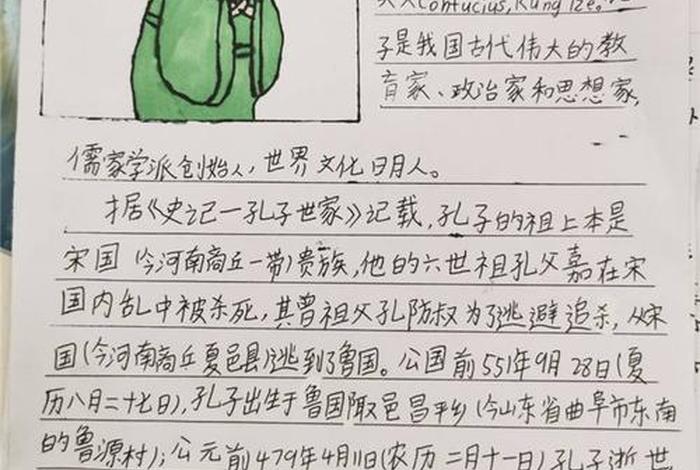 Confucius, Kung Tze。
子是我国古代伟大的教
育家、政治家和思想家,
儒家学派创始人,世界文化日月人。
才居《史记一孔子世家》记载,孔子的祖上本是
宋国(今河南商丘一带)贵族,他的六世祖孔父嘉在宋
国内乱中被杀死,其曾祖父孔防叔为了逃避追杀,从宋
国(今河南商丘夏邑县)逃到了鲁国。公国前551年9月28日(夏
历八月二十七日),孔子出生于鲁国陬邑昌平乡(今山东省曲阜市东南
的鲁源村);公元前479年4月11日(农历二月十一日)孔子浙世